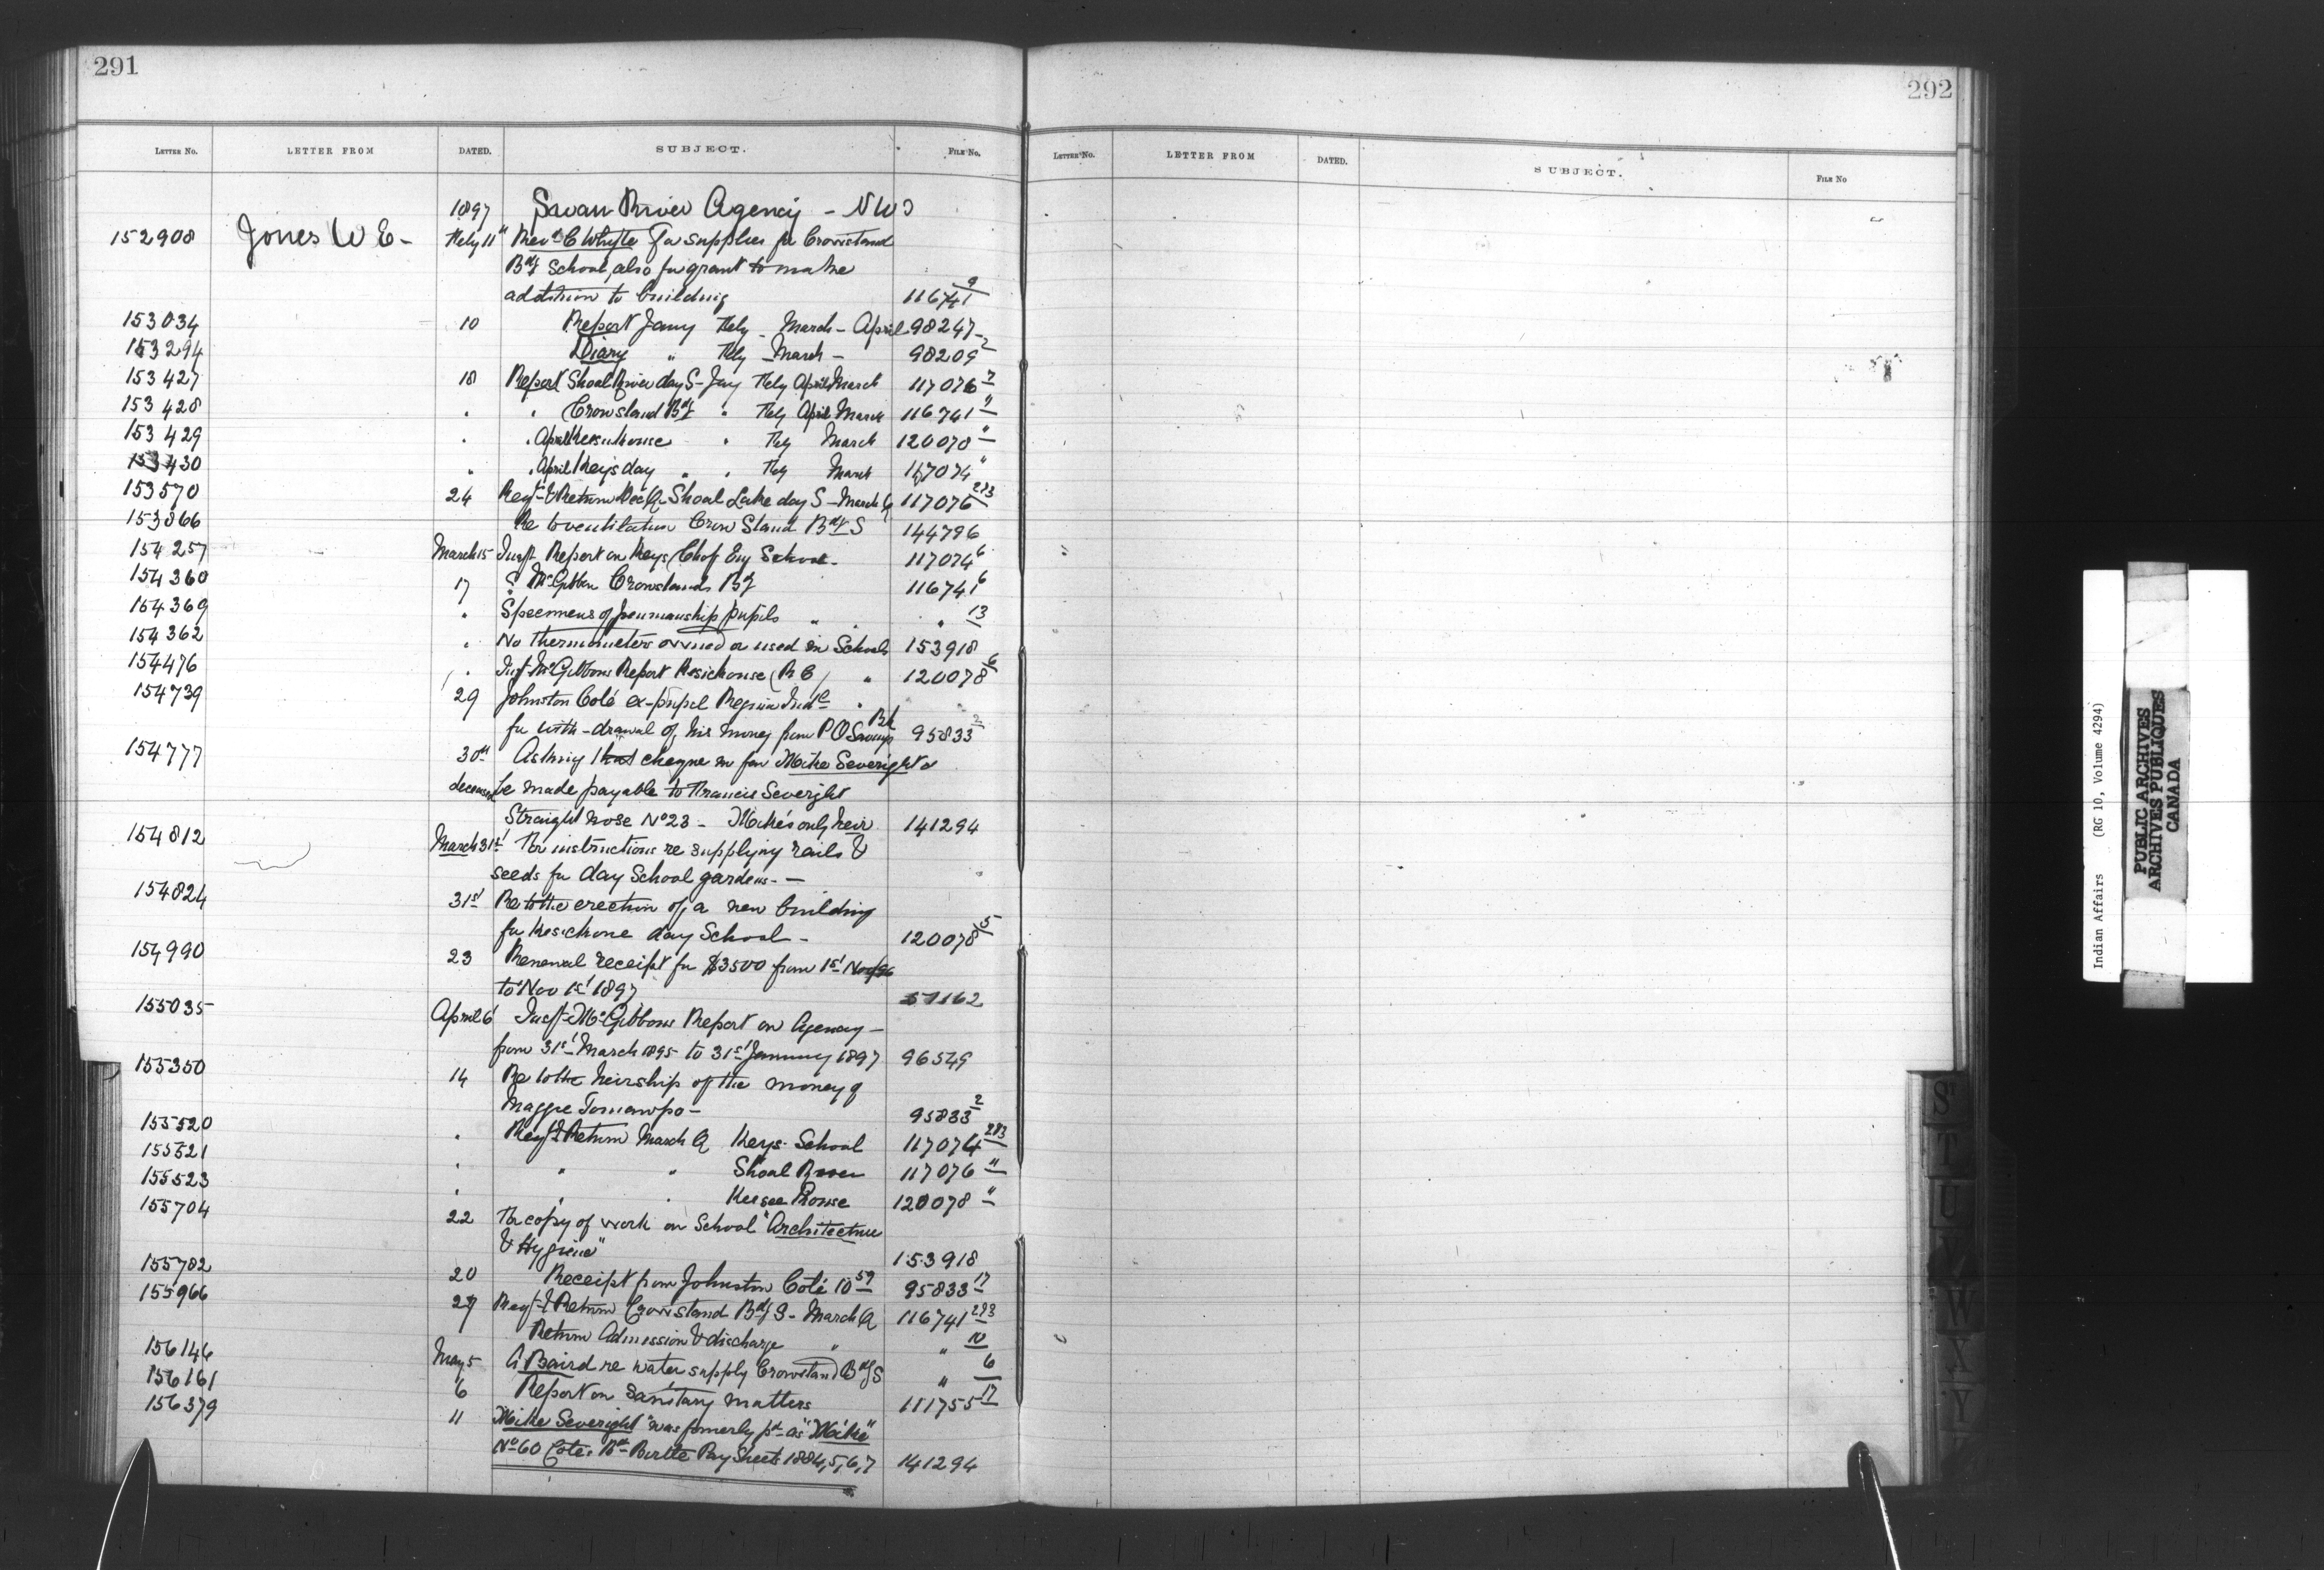 291
292
LETTER NO. LETTER FROM DATED. SUBJECT. FILE NO.
LETTER NO. LETTER FROM DATED. SUBJECT. FILE NO
1897 Swan River Agency - NW
152908 Jones W E - Feby 11 Revd C Whyte for supplies for Crowstand
Bdg School, also for grant to make
addition to building 116741 9
153034 10 Report Jany Feby March - April 98247
153294 Diary " Feby - March - 98209 2
153427 18 Report Shoal River day S - Jay Feby April March 117076 7
153428 " " Crowstand Bdg " Feby April March 116741 "
153429 " " April Keesuhouse " Feby March 120078 "
153430 " " April Keys day " " Feby March 117074 "
153570 24 Regr & Return Dec Q - Shoal Lake day S - March Q 117076 2&3
153866 Re to ventilation Crow Stand Bdg S 144796
154257 March 15 Insp Report on Keys (Ch of Eng School - 117074 6
154360 17 " McGibbon Crowstand Bdg 116741 6
154369 " Specimens of penmanship pupils " " " 13
154362 " No thermometers owned or used in Schools 153918
154476 " Insp McGibbons Report Kesichouse (R C) " 120078 6
154739 29 Johnston Coté ex-pupil Regina Indl "
for with-drawal of his money from P O Savings Bk 95833 2
154777 30th Asking that cheque in fav Mike Severight
deceased be made payable to Francis Severight
Straight nose No 23 - Mike's only heir 141294
154812 March 31st For instructions re supplying rails &
seeds for day School gardens. -
154824 31st Re to the erection of a new building
for Kesichouse day School - 120078 5
154990 23 Renewal receipt for $3500 from 1st Nov/96
to Nov 1st 1897 57162
155035 April 6 Insp McGibbons Report on Agency -
from 31st March 1895 to 31st January 1897 96549
155350 14 Re to the heirship of the money of
Maggie Tomawpo - 95833 2
155520 " Regr & Return March Q Keys School 117074 2&3
155521 " " " Shoal River 117076 "
155523 " " " Keesee House 120078 "
155704 22 For copy of work on School "Architecture
& Hygiene" 153918
155782 20 Receipt from Johnston Coté 10 59 95833 17
155966 27 Regr & Return Crowstand Bdg S - March Q 116741 2&3
Return Admission & discharge " " 10
156146 May 5 A Baird re water supply Crowstand Bdg S " 6
156161 6 Report on Sanitary matters 111755 17
156379 11 Mike Severight "was formerly pd as "Mike"
No 60 Cotes Bd - Birtle Pay Sheets 1884,5,6,7 141294
S
T
U
V
W
X
Y
Indian Affairs (RG 10, Volume 4294)
PUBLIC ARCHIVES
ARCHIVES PUBLIQUES
CANADA